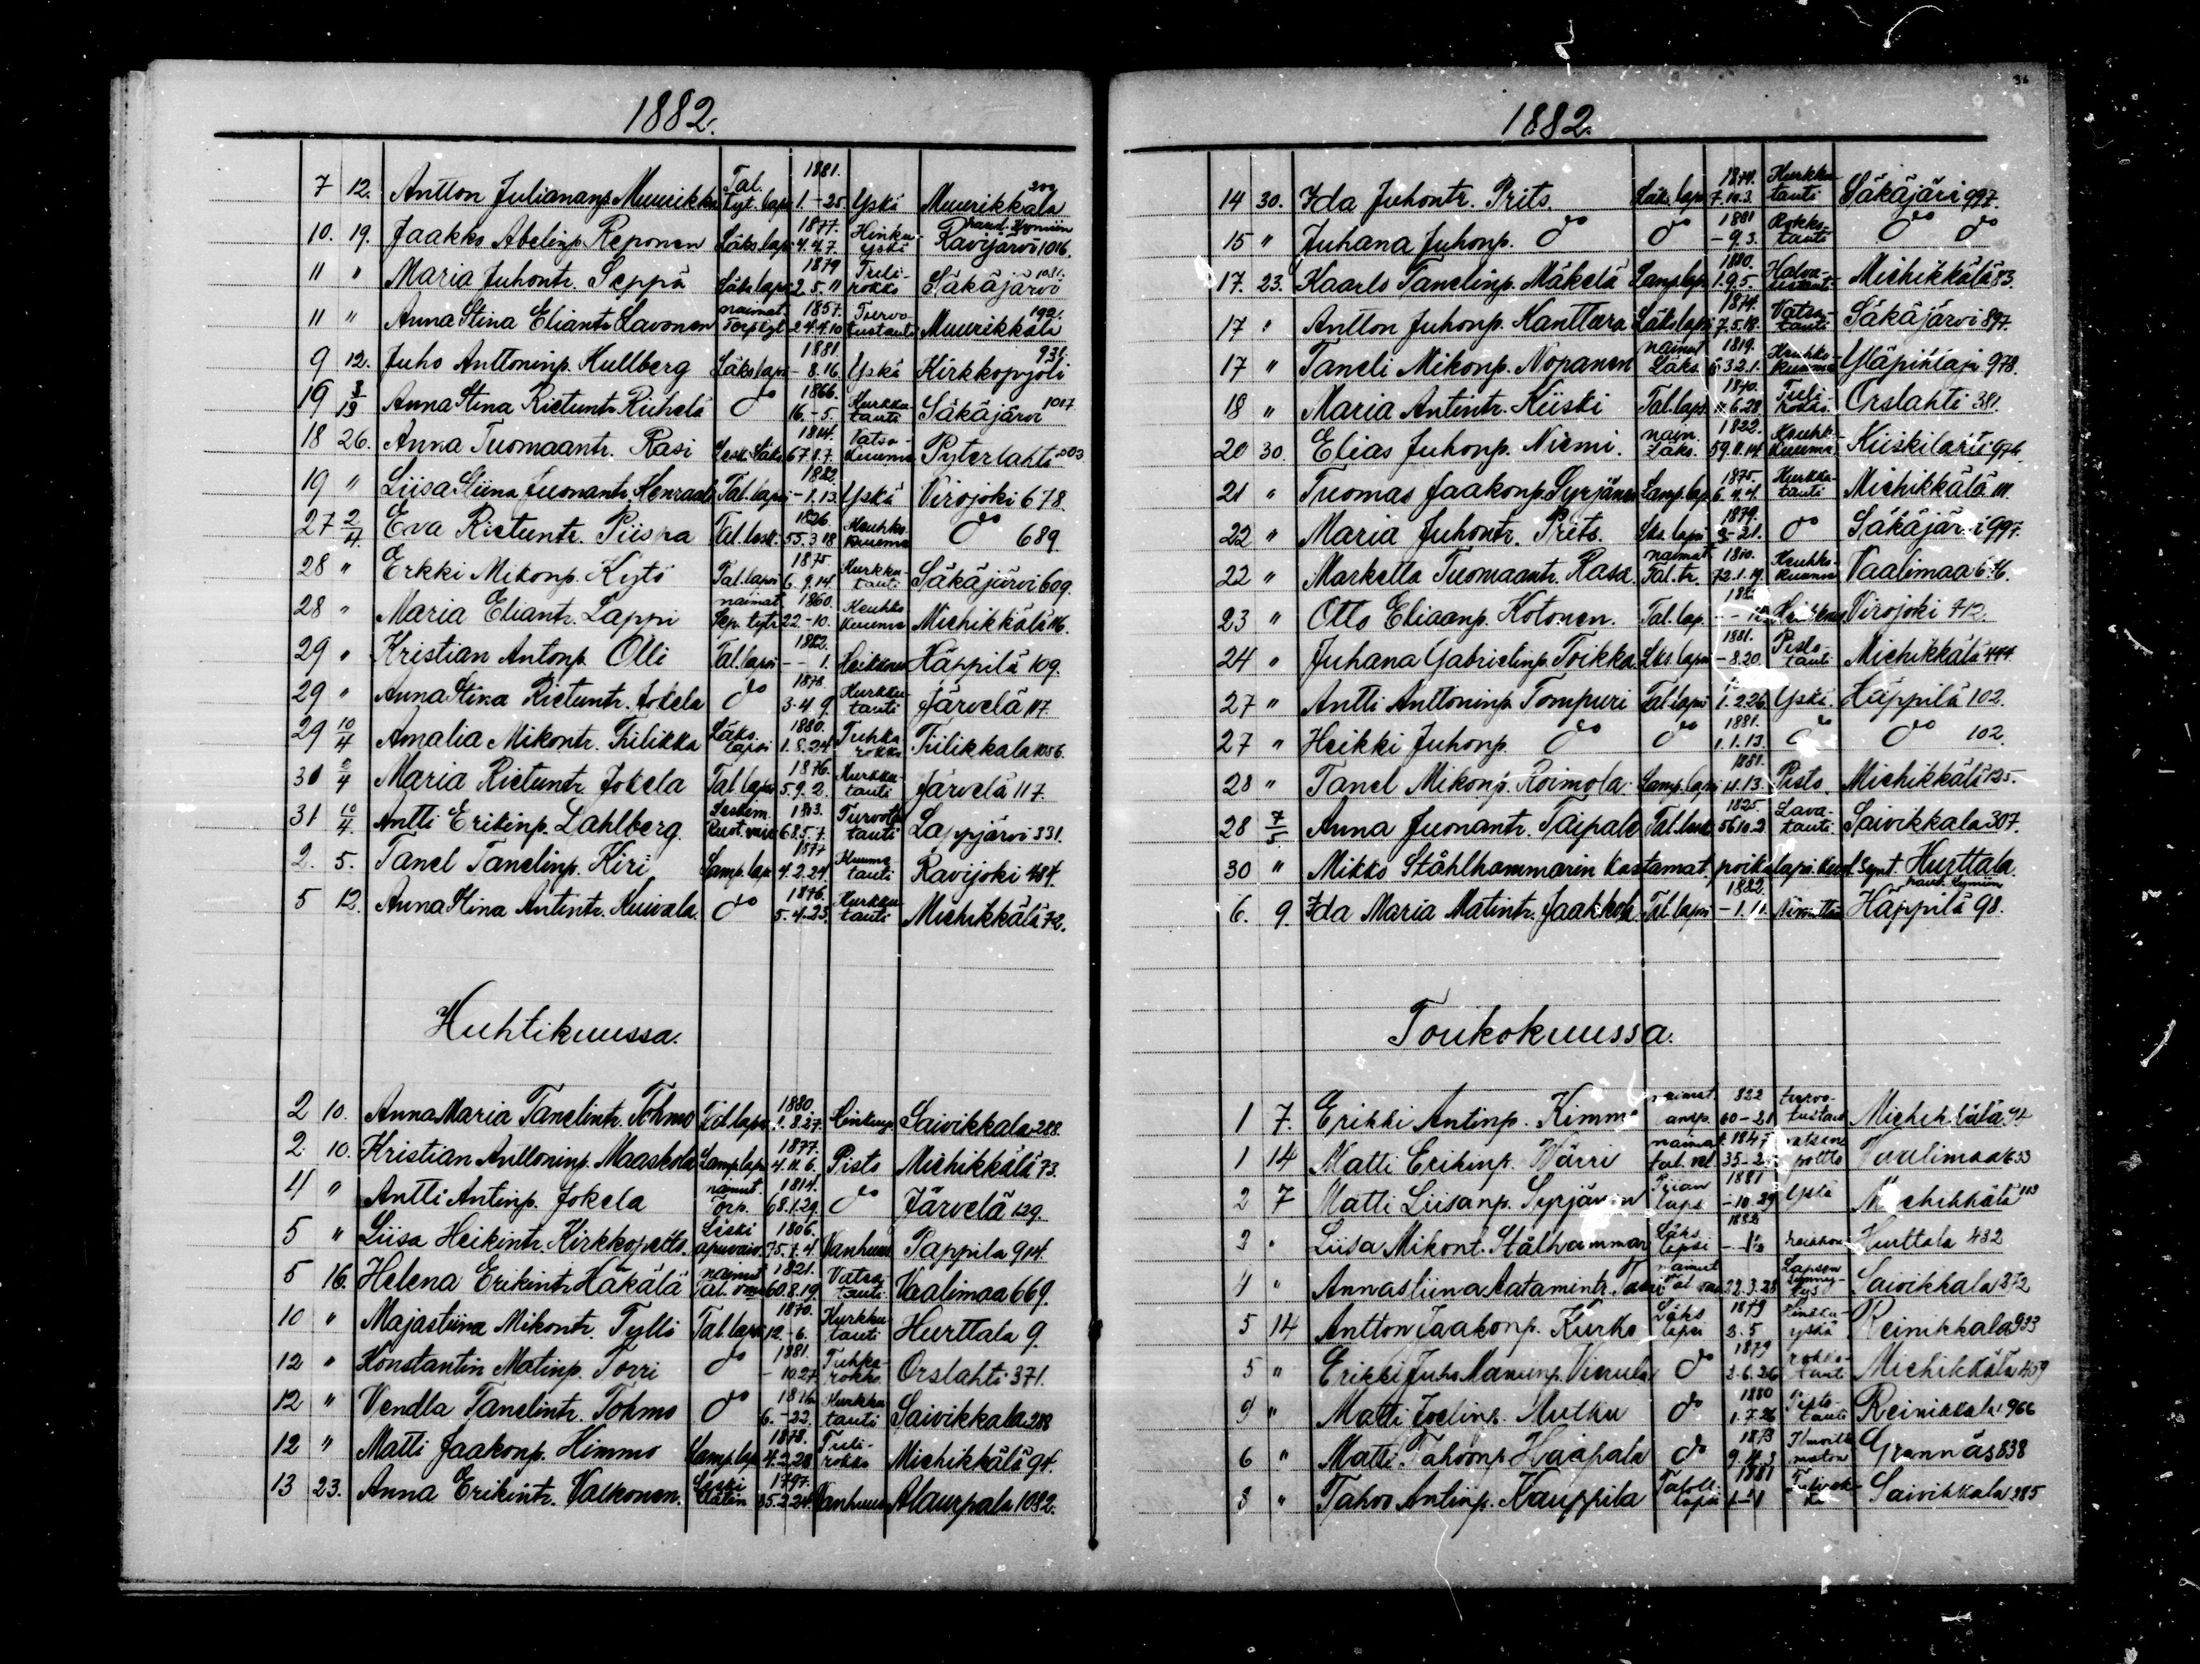 1882.
7 12. Antton Juliananp. Muurikka Tal. tyt. lapsi 1881. 1.-25. Yskä Muurikkala 200
10. 19. Jaakko Abelinp. Reponen Läks. lapsi 1877. 4.4.7. Hinku-yskä haud. Kymiin Ravijärvi 1016.
11 " Maria Juhontr. Seppä Läks. lapsi 1879 2.5.11 Tuli-rokko Säkäjärvi 1031.
11 " Anna Stina Eliantr. Lavonen naimat. Torp. tyt. 1857. 24.4.10 Turvo-tustauti Muurikkala 192.
9 12. Juho Anttoninp. Kullberg Läks. lapsi 1881. -8.16. Yskä Kirkkopyöli 939.
19 3/19 Anna Stina Rietuntr. Riihelä do 1866. 16.-5. Kurkku-tauti Säkäjärvi 1017
18 26. Anna Tuomaantr. Rasi Lesk. Läks. 1814. 67.8.7. Vatsa-kuume Pyterlahti 503
19 " Liisa Stiina Juonantr. Tal. lapsi 1882. -1.13. Yskä Virojoki 678.
27 2/4. Eva Rietuntr. Piispa Tal. lesk. 1826. 55.3.18 Keuhko-kuume do 689.
28 " Erkki Mikonp. Kytö Tal. lapsi 1875 6.9.14 Kurkku-tauti Säkäjärvi 609.
28 " Maria Eliantr. Lappi naimat. Sep. tytr. 1860. 22.-10. Keuhko-kuume Michikkälä 116.
29 " Kristian Antonp. Olli Tal. lapsi 1882. - - 1. Heikkous Häppilä 109.
29 " Anna Stina Rietuntr. Jokela do 1878. 3.4.9. Kurkku-tauti Järvelä 117
29 10/4 Amalia Mikontr. Tilikka Läks. lapsi 1880. 1.8.24. Tuhka-rokko Tiilikkala 1056.
30 2/4 Maria Rietuntr. Jokela Tal. lapsi 1876. 5.9.2. Kurkku-tauti Järvelä 117.
31 10/4. Antti Erikinp. Lahlberg. Leskim. Ruot. vaiv. 1813. 68.5.7. tauti Lappjärvi 331.
2. 5. Tanel Tanelinp. Kiri Lamp. lap. 1877 4.2.24 Kuume-tauti Ravijoki 484.
5 12. Anna Stina Antintr. Kuivala. do 1876. 5.4.23. Kurkku-tauti Michikkälä 72.
Huhtikuussa.
2 10. Anna Maria Tanelintr. Tohmo Tal. lapsi 1880. 1.8.27. Hinkuys. Saivikkala 288.
2 10. Kristian Anttoninp. Maaskola Lamp. lap. 1877. 4.11.6. Pisto Michikkälä 73.
4 " Antti Antinp. Jokela naimat. Torp. 1814. 68.1.29. do Järvelä 129.
5 " Liisa Heikintr. Kirkkopelto. Leski apuvaiv. 1806. 75.7.4. Vanhuus Pappila 914.
5 16. Helena Erikintr. Häkälä naimat. Tal. 1821. 60.8.19. Vatsa-tauti Vaalimaa 669.
10 " Majastiina Mikontr. Tylli Tal. lapsi 1870. 12.-6. Kurkku-tauti Hurttala 9.
12 " Konstantin Matinp. Torri do 1881. -10.27. Tuhka-rokko Orslahti 371.
12 " Vendla Tanelintr. Tohmo do 1876. 6.-22. Kurkku-tauti Saivikkala 288
12 " Matti Jaakonp. Himmo Lamp. lap. 1878. 4.2.28 Tuli-rokko Michikkälä 94.
13 23. Anna Erikintr. Valkonen. Leski 1797. 85.2.24. Vanhuus Alaurpala 1082.
36
1882.
14 30. Ida Juhontr. Prits. Läks. lapsi 1874. 7.10.3. Kurkku-tauti Säkäjärvi 997.
15 " Juhana Juhonp. do do 1881 -9.3. Rokko-tauti do do
17. 23. Kaarlo Tanelinp. Mäkelä Lamp. lap. 1880. 1.9.5. Michikkälä 83.
17 " Antton Juhonp. Kanttura Läks. lapsi 1874. 7.5.18. Vatsa-tauti Säkäjärvi 897.
17 " Taneli Mikonp. Nopanen naimat Läks. 1819. 63.2.1. Keuhko-kuume Yläpihlaja 978.
18 " Maria Antintr. Kiiski Tal. laps. 1870. 11.6.28. Tuli-rokko Orslahti 381.
20 30. Elias Juhonp. Niemi. naim. Läks. 1822. 59.11.14. Keuhko-kuume Kiiskilahti 974.
21 " Tuomas Jaakonp. Syrjänen Lamp. lap. 1875. 6.4.4. Kurkku-tauti Michikkälä 111.
22 " Maria Juhontr. Prits. Läks. lapsi 1879. 3-21. do Säkäjärvi 997.
22 " Marketta Tuomaantr. Rasi. naimat Tal. tr. 1810. 72.1.19. Keuhko-kuume Vaalimaa 676.
23 " Otto Eliaanp. Kotonen. Tal. lap. Heikkous Virojoki 712.
24 " Juhana Gabrielinp. Toikka Läks. lapsi 1881. -8.20. Pisto-tauti Michikkälä 444.
27 " Antti Anttoninp. Tompuri Tal. lapsi 1.2.26. Yskä. Häppilä 102.
27 " Heikki Juhonp. do do 1881. 1.1.13. do do 102.
28 " Tanel Mikonp. Roimola. Lamp. lapsi 1881. 11.13. Pisto. Michikkälä 125.
28 7/5. Anna Juonantr. Taipale Tal. lesk. 1825. 56.10.2. Lava-tauti Saivikkala 307.
30 " Mikko Ståhlhammarin kastamat. poikalapsi kuol. synt. Hurttala.
6. 9. Ida Maria Matintr. Jaakkola Tal. lapsi 1882. -1.11. haud. Kymiin Häppilä 98.
Toukokuussa.
1 7. Erikki Antinp. Kimmo naimat. 822 60-21 turvo-tustauti Michikkälä 94
1 14 Matti Erikinp. Värri naimat. tal. 184 35-2 vatsan poltto Vaalimaa 633
2 7 Matti Liisanp. Syrjänen Piian laps. 1881 -10.29 Yskä Michikkälä 113
3 " Liisa Mikont. Stålhammar Läks. lapsi 1882 heikkous Hurttala 432
4 " Annastiina Aatamintr. naimat Tal. 22.3.28 Lapsen synny-tys Saivikkala 372
5 14 Antton Jaakonp. Kurko Läks lapsi 1879 3.5 Hinku-yskä Reinikkala 933
5 " Erikki Juho Manunp. do 1879 2.6.26 rokko-tauti Michikkälä 459
9 " Matti Joelinp. Mutku do 1880 1.7.26 Pisto-tauti Reinikkala 966
6 " Matti Tahvonp. Haapala do 1873 Ilmoitta-maton Grennäs 838
8 " Tahvo Antinp. Kauppila Taloll. lapsi 1881 Tulirok-ko Saivikkala 385